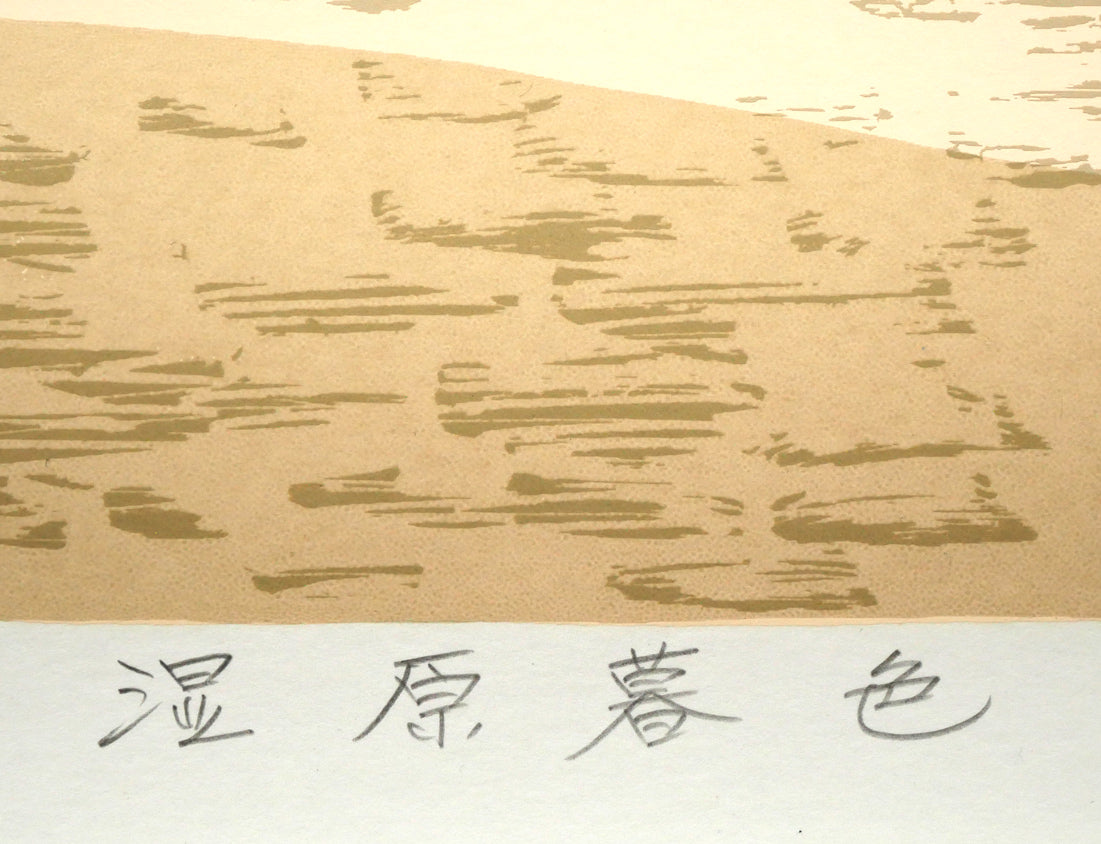 湿原暮色